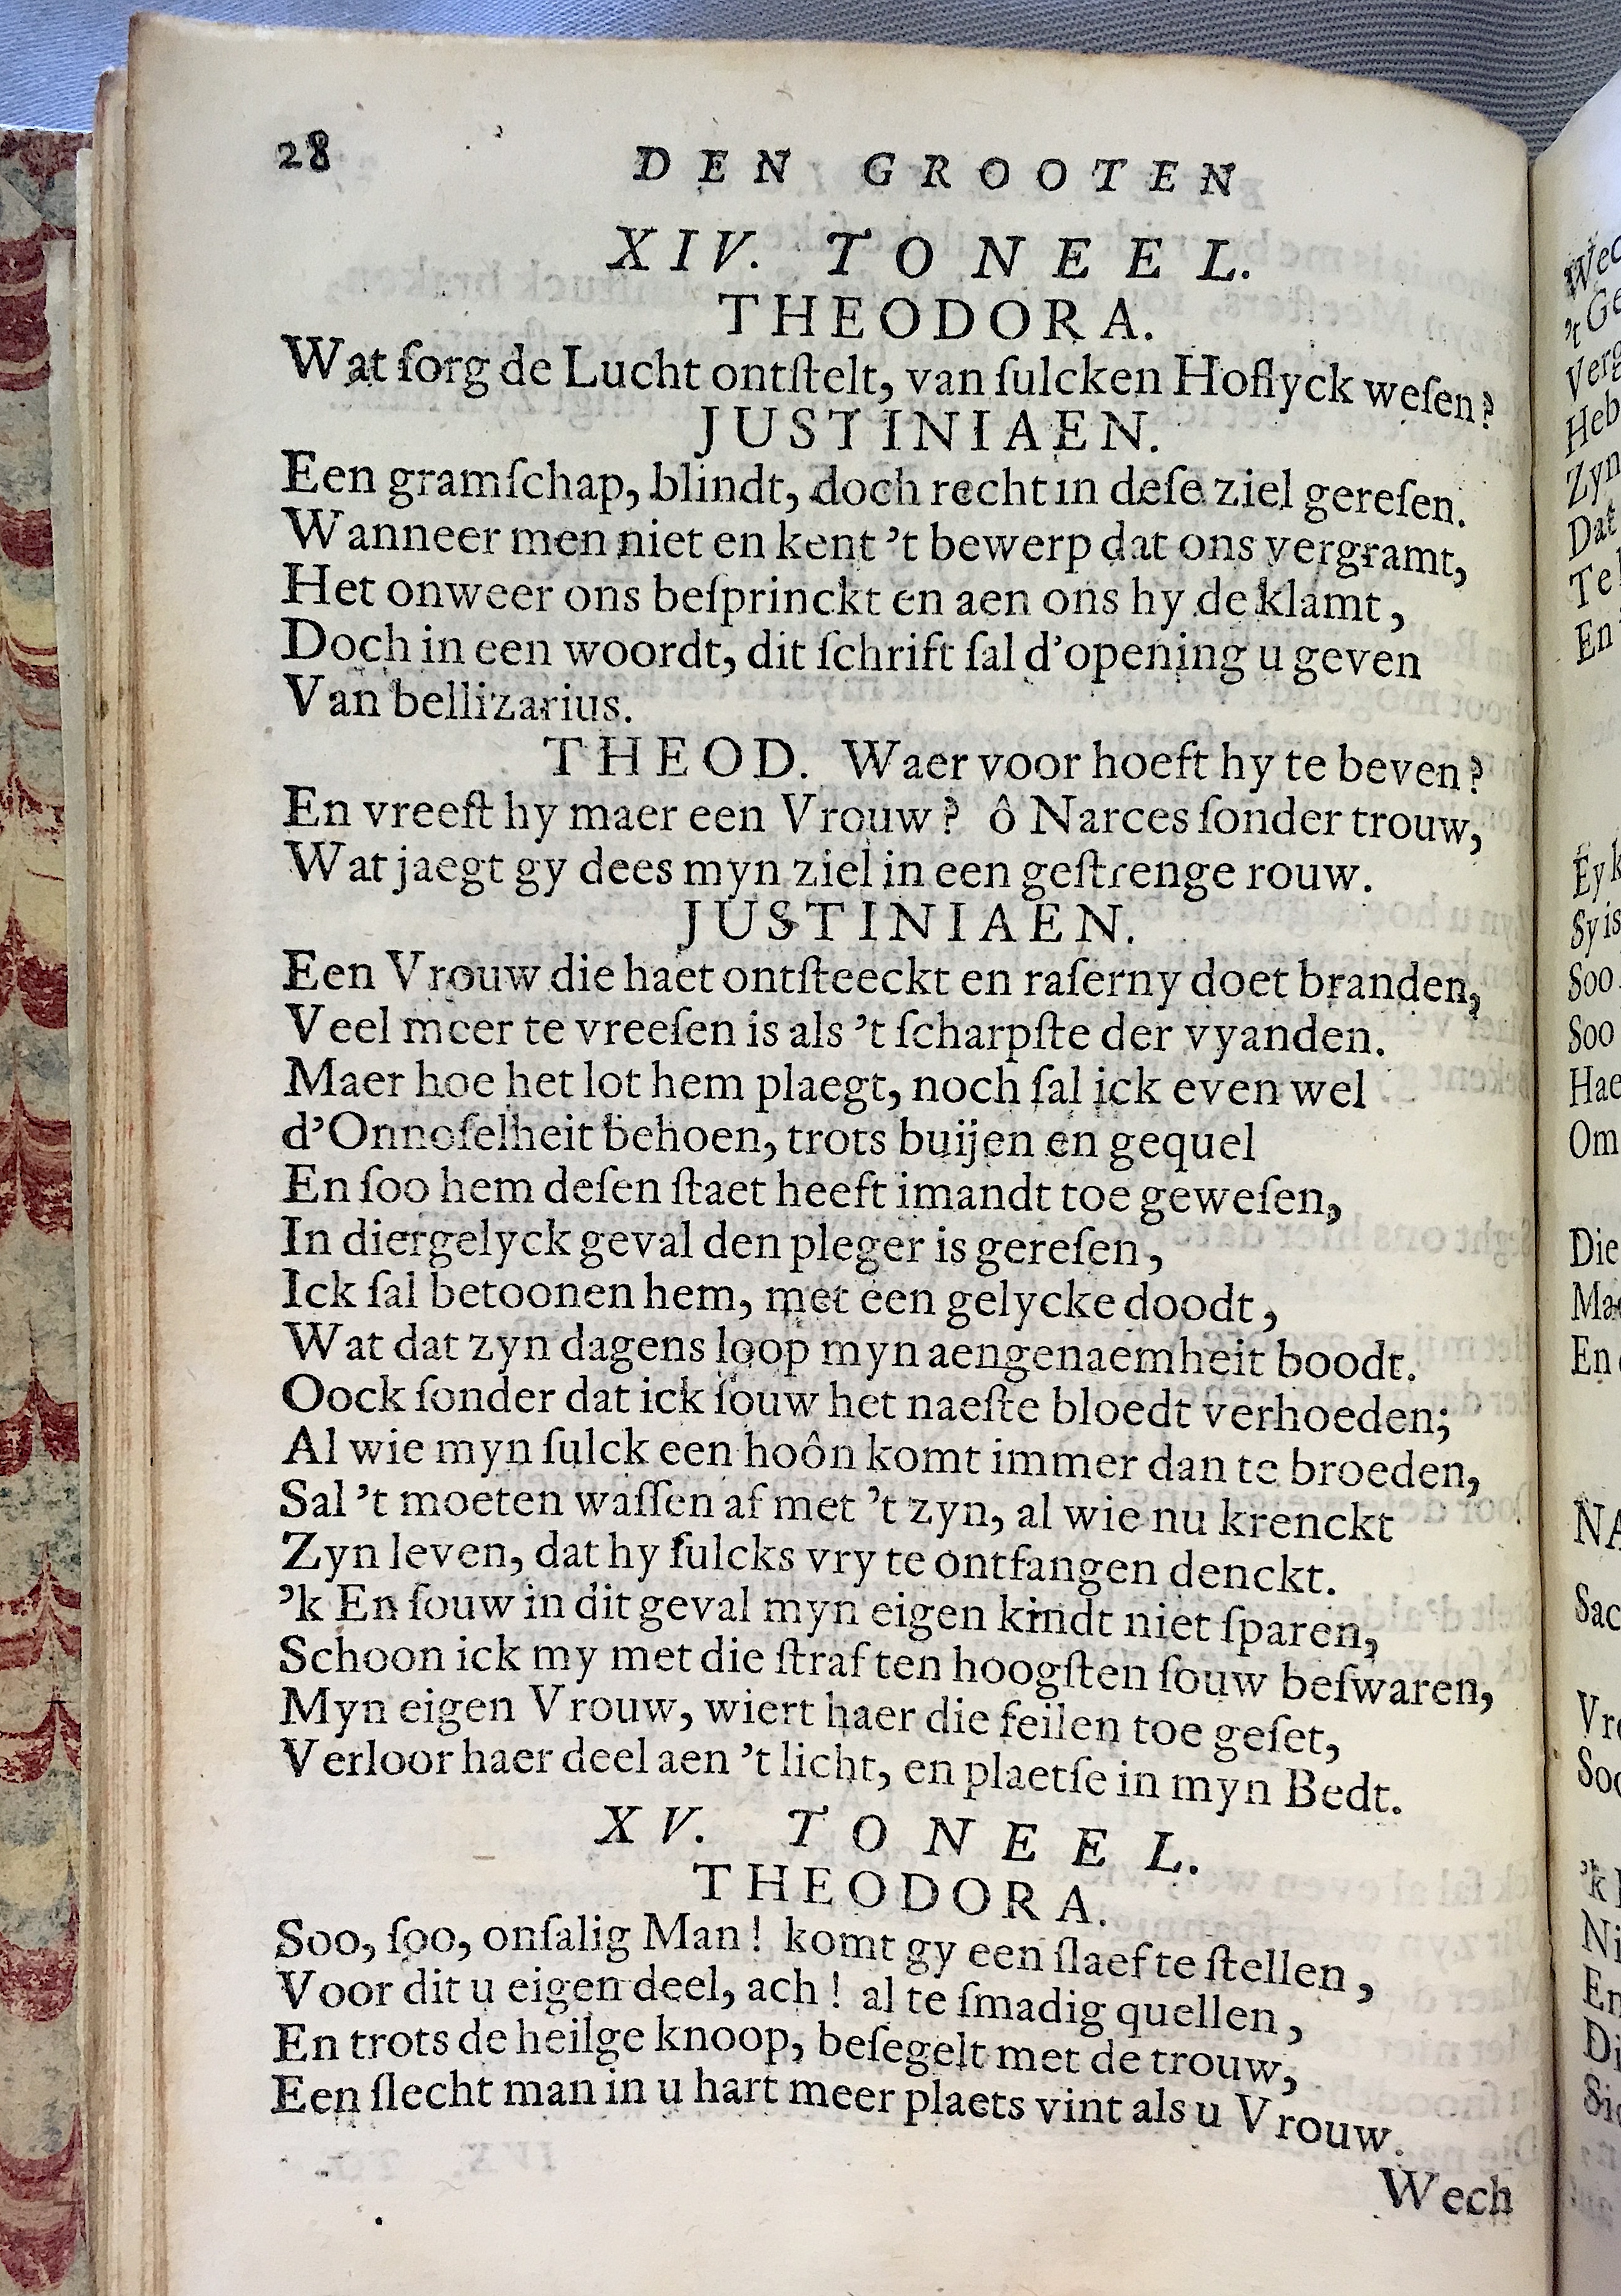 28
DEN GROOTEN
XIV. TONEEL.
THEODORA.
Wat ſorg de Lucht ontſtelt, van ſulcken Hoflyck weſen?
JUSTINIAEN.
Een gramſchap, blindt, doch recht in deſe ziel gereſen.
Wanneer men niet en kent 't bewerp dat ons vergramt,
Het onweer ons beſprinckt en aen ons hy de klamt,
Doch in een woordt, dit ſchrift ſal d'opening u geven
Van bellizarius.
THEOD. Waer voor hoeft hy te beven?
En vreeſt hy maer een Vrouw? ô Narces ſonder trouw,
Wat jaegt gy dees myn ziel in een geſtrenge rouw.
JUSTINIAEN.
Een Vrouw die haet ontſteeckt en raſerny doet branden,
Veel meer te vreeſen is als 't ſcharpſte der vyanden.
Maer hoe het lot hem plaegt, noch ſal ick even wel
d'Onnoſelheit behoen, trots buijen en gequel
En ſoo hem deſen ſtaet heeft imandt toe geweſen,
In diergelyck geval den pleger is gereſen,
Ick ſal betoonen hem, met een gelycke doodt,
Wat dat zyn dagens loop myn aengenaemheit boodt.
Oock ſonder dat ick ſouw het naeſte bloedt verhoeden;
Al wie myn ſulck een hoôn komt immer dan te broeden,
Sal 't moeten waſſen af met 't zyn, al wie nu krenckt
Zyn leven, dat hy ſulcks vry te ontfangen denckt.
'k En ſouw in dit geval myn eigen kindt niet ſparen,
Schoon ick my met die ſtraf ten hoogſten ſouw beſwaren,
Myn eigen Vrouw, wiert haer die feilen toe geſet,
Verloor haer deel aen 't licht, en plaetſe in myn Bedt.
XV. TONEEL.
THEODORA.
Soo, ſoo, onſalig Man! komt gy een ſlaef te ſtellen,
Voor dit u eigen deel, ach! al te ſmadig quellen,
En trots de heilge knoop, beſegelt met de trouw,
Een ſlecht man in u hart meer plaets vint als u Vrouw.
Wech